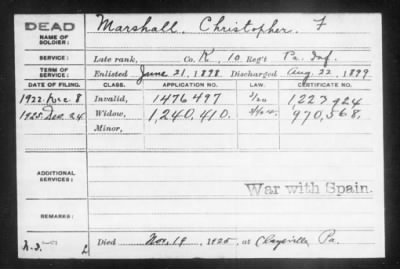 DEAD
NAME OF SOLDIER: Marshall, Christopher. F
SERVICE: Late rank, Co. K, 10 Reg't Pa. Inf.
TERM OF SERVICE: Enlisted June 21, 1898. Discharged Aug. 22, 1899
DATE OF FILING. CLASS. APPLICATION NO. LAW. CERTIFICATE NO.
1922. Dec. 8 Invalid, 1476497 1,223,424
1925. Dec. 24. Widow, 1,240,410. 970,568.
Minor,
ADDITIONAL SERVICES: War with Spain.
REMARKS:
Died Nov. 19, 1925, at Claysville Pa.